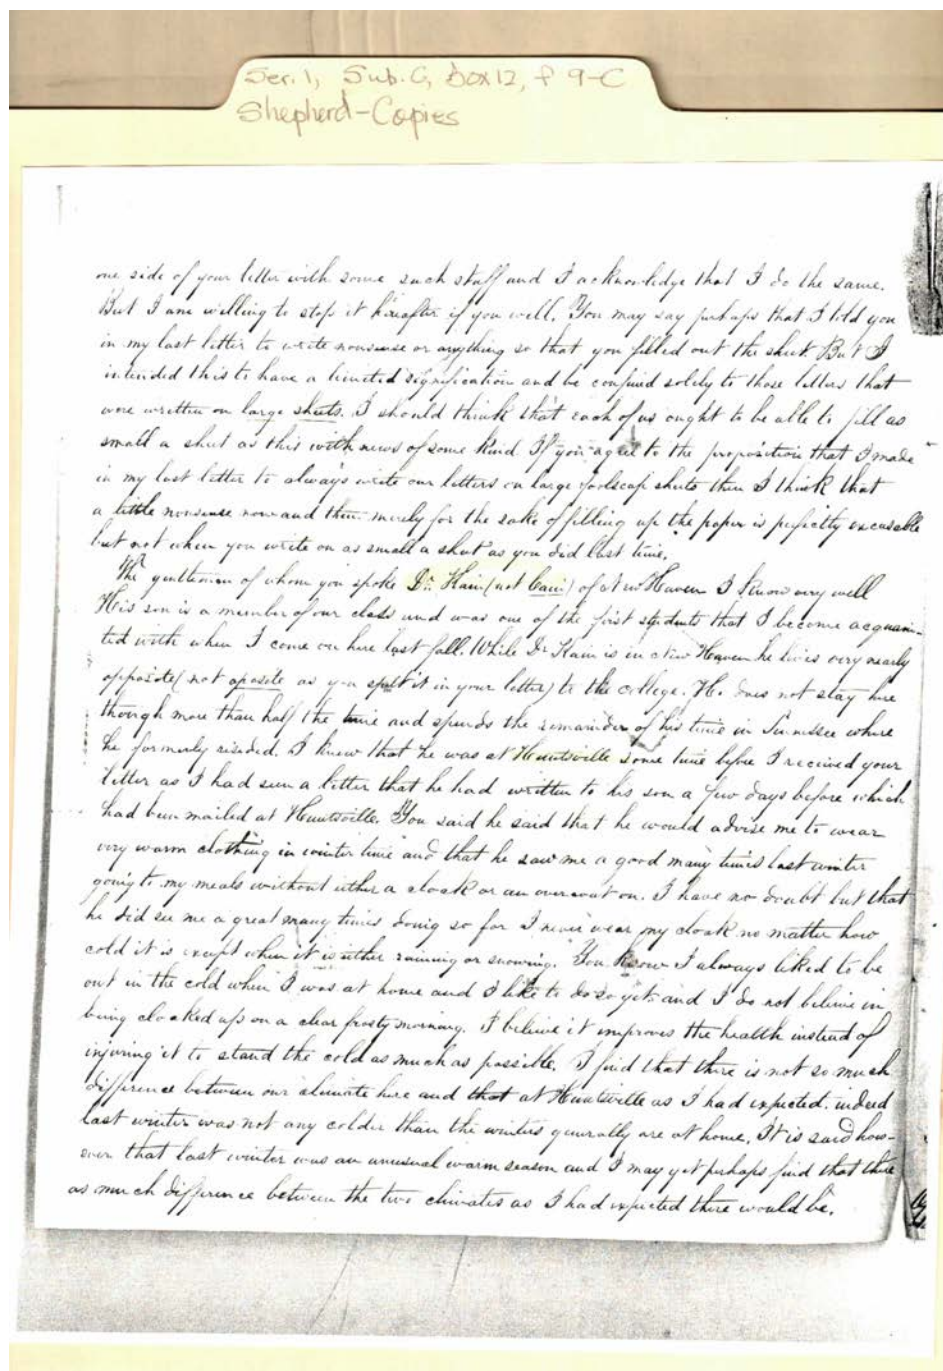 Ser. 1, Sub. C, box 12, f 9-C
Shepherd-Copies
one side of your letter with some such stuff and I acknowledge that I do the same.
But I am willing to stop it hereafter if you well. You may say perhaps that I told you
in my last letter to write nonsense or anything so that you filled out the sheet. But I
intended this to have a limited signification and be confined solely to those letters that
were written on large sheets. I should think that each of us ought to be able to fill as
small a sheet as this with news of some kind. If you agree to the proposition that I made
in my last letter to always write our letters on large foolscap sheets then I think that
a little nonsense now and then merely for the sake of filling up the paper is perfectly excusable
but not when you write on as small a sheet as you did last time.
The gentleman of whom you spoke Dr. Kain (not Cain) of New Haven I know very well
His son is a member of our class and was one of the first students that I become acquain-
ted with when I come on here last fall. While Dr Kain is in New Haven he lives very nearly
opposite (not aposite as you spelt it in your letter) to the college. He does not stay here
though more than half the time and spends the remainder of his time in Tennessee where
he formerly resided. I knew that he was at Huntsville some time before I received your
letter as I had seen a letter that he had written to his son a few days before which
had been mailed at Huntsville. You said he said that he would advise me to wear
very warm clothing in winter time and that he saw me a good many times last winter
going to my meals without either a cloak or an overcoat on. I have no doubt but that
he did see me a great many times doing so for I never wear my cloak no matter how
cold it is except when it is either raining or snowing. You know I always liked to be
out in the cold when I was at home and I like to do so yet and I do not believe in
being cloaked up on a clear frosty morning. I believe it improves the health instead of
injuring it to stand the cold as much as possible. I find that there is not so much
difference between our climate here and that at Huntsville as I had expected. indeed
last winter was not any colder than the winters generally are at home. It is said how-
ever that last winter was an unusual warm season and I may yet perhaps find that there
as much difference between the two climates as I had expected there would be.